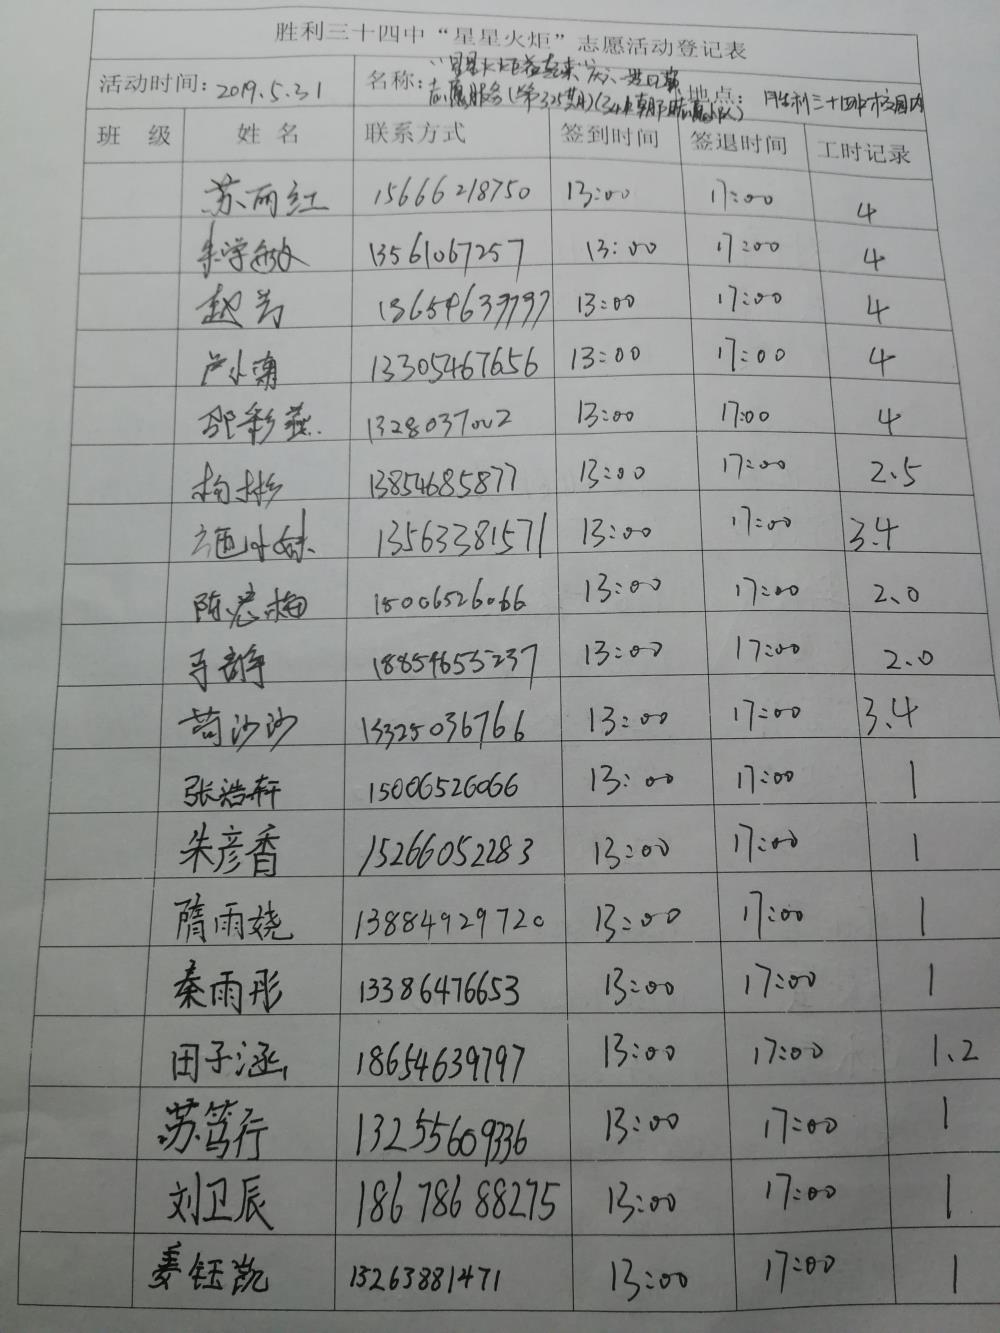 胜利三十四中“星星火炬”志愿活动登记表
活动时间：2019.5.31 名称： 志愿服务 地点：胜利三十四中校园内
班 级 姓 名 联系方式 签到时间 签退时间 工时记录
苏丽红 15666218750 13:00 17:00 4
朱学敏 13561067257 13:00 17:00 4
赵芳 18654639797 13:00 17:00 4
芦小南 13305467656 13:00 17:00 4
邵彩燕 1328037002 13:00 17:00 4
杨彬 13854685877 13:00 17:00 2.5
13563381571 13:00 17:00 3.4
陈彦梅 15006526066 13:00 17:00 2.0
马静 18854653237 13:00 17:00 2.0
苟沙沙 13325036766 13:00 17:00 3.4
张浩轩 15006526066 13:00 17:00 1
朱彦香 15266052283 13:00 17:00 1
隋雨娆 13884929720 13:00 17:00 1
秦雨彤 13386476653 13:00 17:00 1
田子涵 18654639797 13:00 17:00 1.2
苏笃行 13255609336 13:00 17:00 1
刘卫辰 18678688275 13:00 17:00 1
姜钰凯 15263881471 13:00 17:00 1